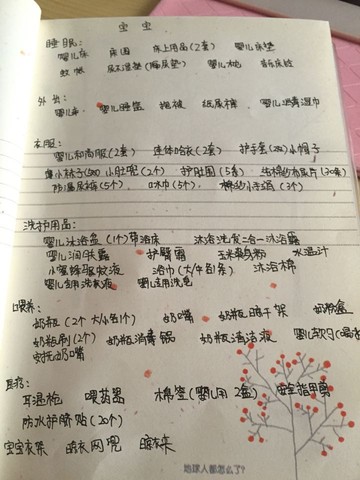 宝宝
睡眠:
婴儿床 床围 床上用品(2套) 婴儿床垫
蚊帐 尿不湿垫(隔尿垫) 婴儿枕 音乐床铃
外出:
婴儿车 婴儿睡篮 抱被 纸尿裤 婴儿消毒湿巾
衣服:
婴儿和尚服(2套) 连体哈衣(2套) 护手套 小帽子
薄小袜子 小肚兜(2个) 护肚围(5条) 纯棉纱布尿片(30条)
防漏尿裤(5个) 口水巾(5个) 棉纱小手酒(3个)
洗护用品:
婴儿沐浴盆(1个)带浴床 沐浴洗发二合一沐浴露
婴儿润肤露 护臀霜 玉米爽身粉 水温计
小蜜蜂驱蚊液 浴巾(大/小各1条) 沐浴棉
婴儿专用洗衣液 婴儿专用洗皂
喂养:
奶瓶(2个大/小各1个) 奶嘴 奶瓶晾干架 奶粉盒
奶瓶刷(2个) 奶瓶消毒锅 奶瓶清洁液 婴儿软勺
安抚奶嘴
医药:
耳温枪 喂药器 棉签(婴儿用 2盒) 安全指甲剪
防水护脐贴(20个)
宝宝衣架 晒衣网兜 晾衣夹
地球人都怎么了?